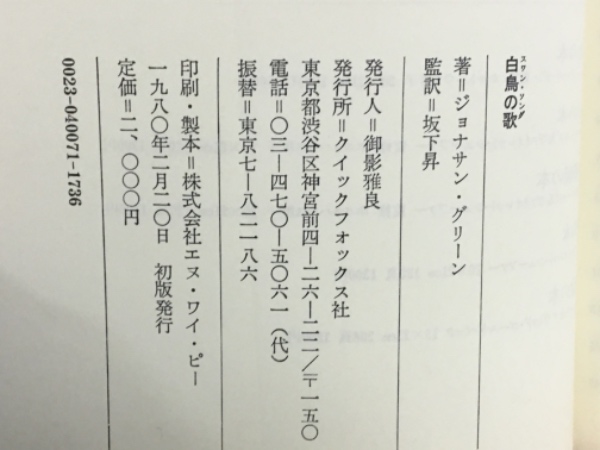 スワン・ソング
白鳥の歌
著=ジョナサン・グリーン
監訳=坂下昇
発行人=御影雅良
発行所=クイックフォックス社
東京都渋谷区神宮前四—二六—二二/〒一五〇
電話=〇三—四七〇—五〇六一(代)
振替=東京七—八二一八六
印刷・製本=株式会社エヌ・ワイ・ピー
一九八〇年二月二〇日 初版発行
定価=二、〇〇〇円
0023-040071-1736